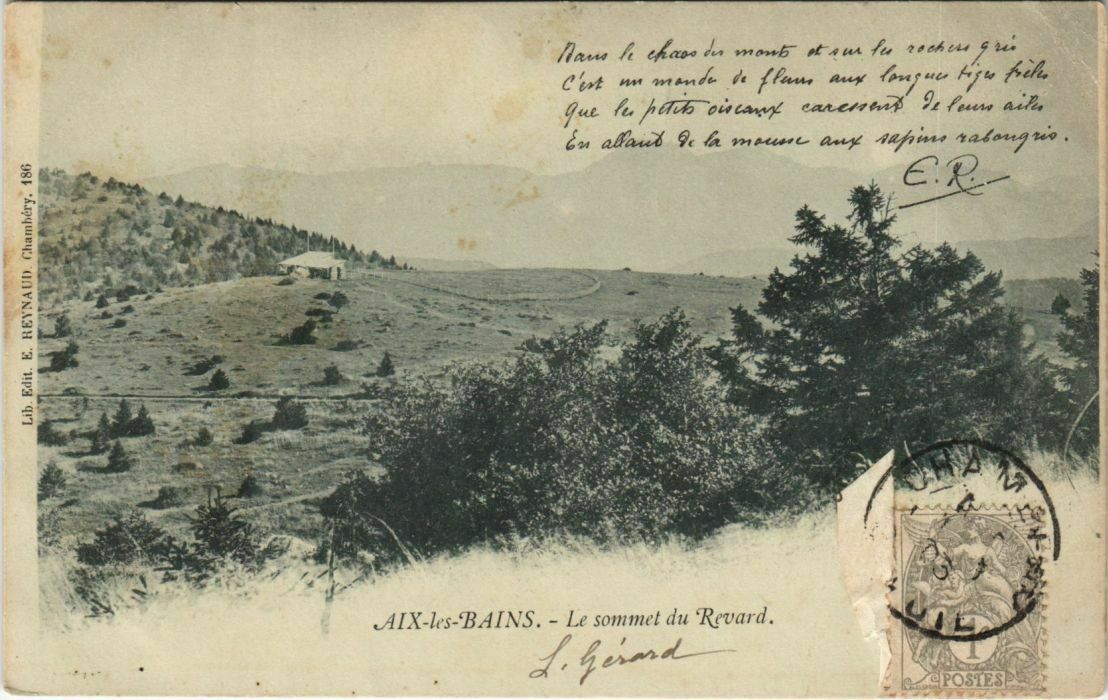 Dans le chaos des monts et sur les rochers gris
C'est un monde de fleurs aux longues tiges frêles
Que les petits oiseaux caressent de leurs ailes
En allant de la mousse aux sapins rabougris.
E. R.
Lib. Edit. E. REYNAUD. Chambéry. 186
AIX-les-BAINS. - Le sommet du Revard.
L. Gérard
1
POSTES